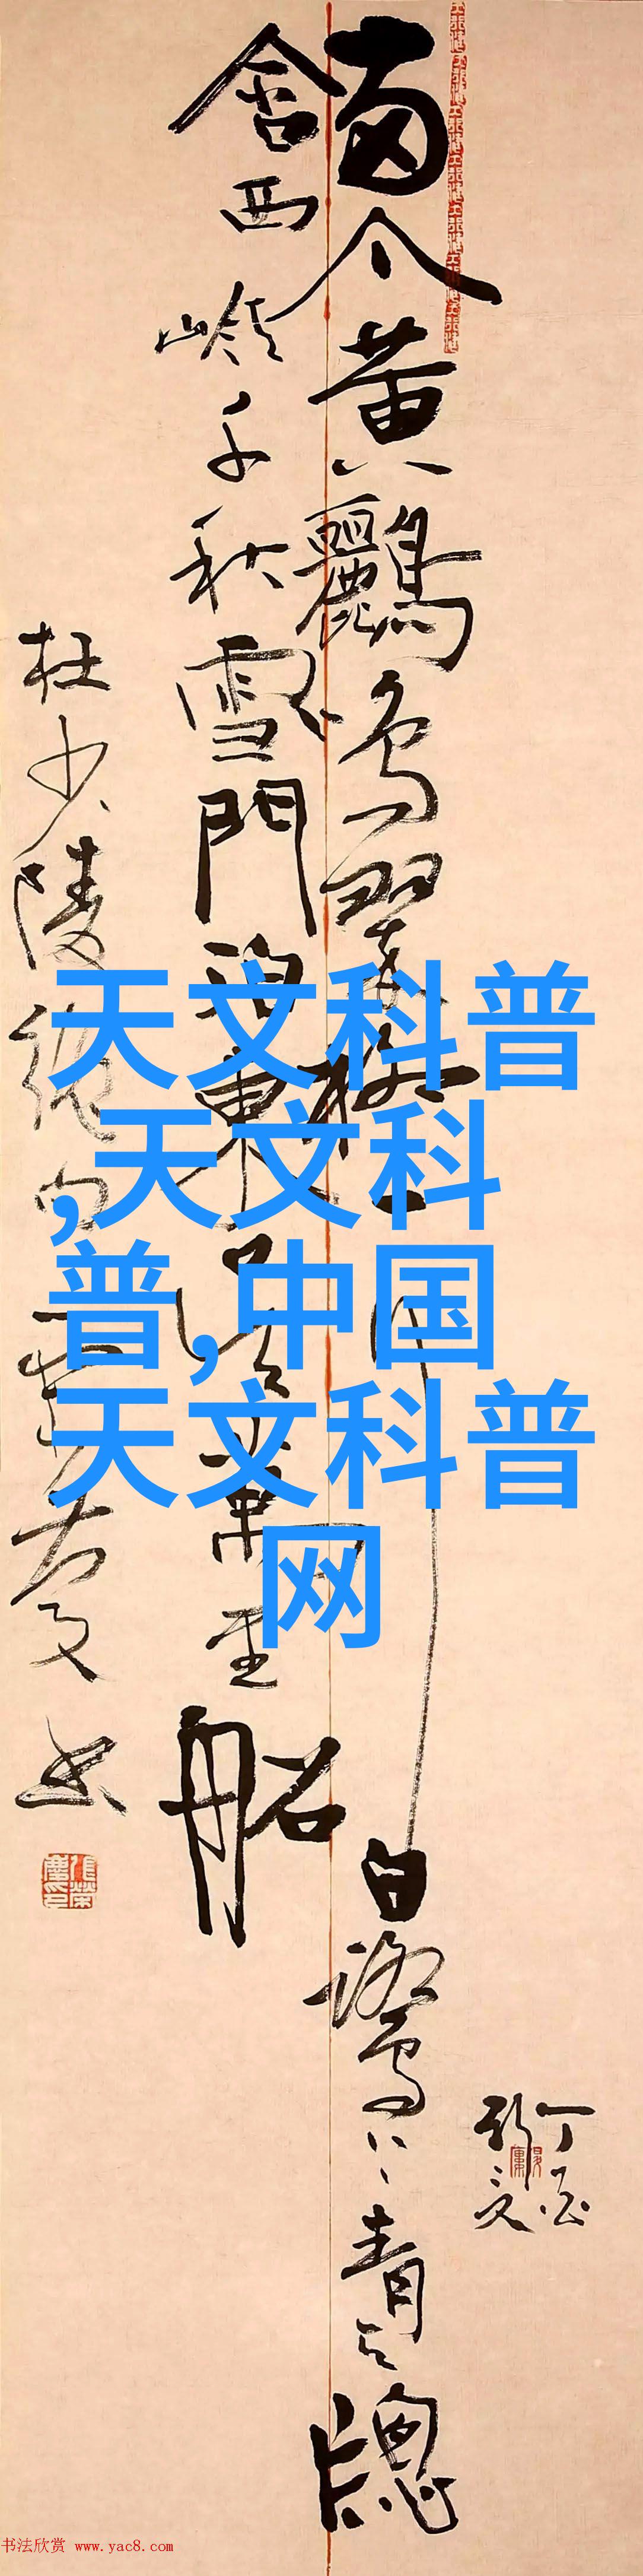 天文科普
,天文科
普,中国
天文科普
网
兩个黄鸝鳴翠柳一行白鷺上青天牕
含西嶺千秋雪門泊東吴萬里船
杜少陵絶句
丁酉
书法欣赏 www.yac8.com